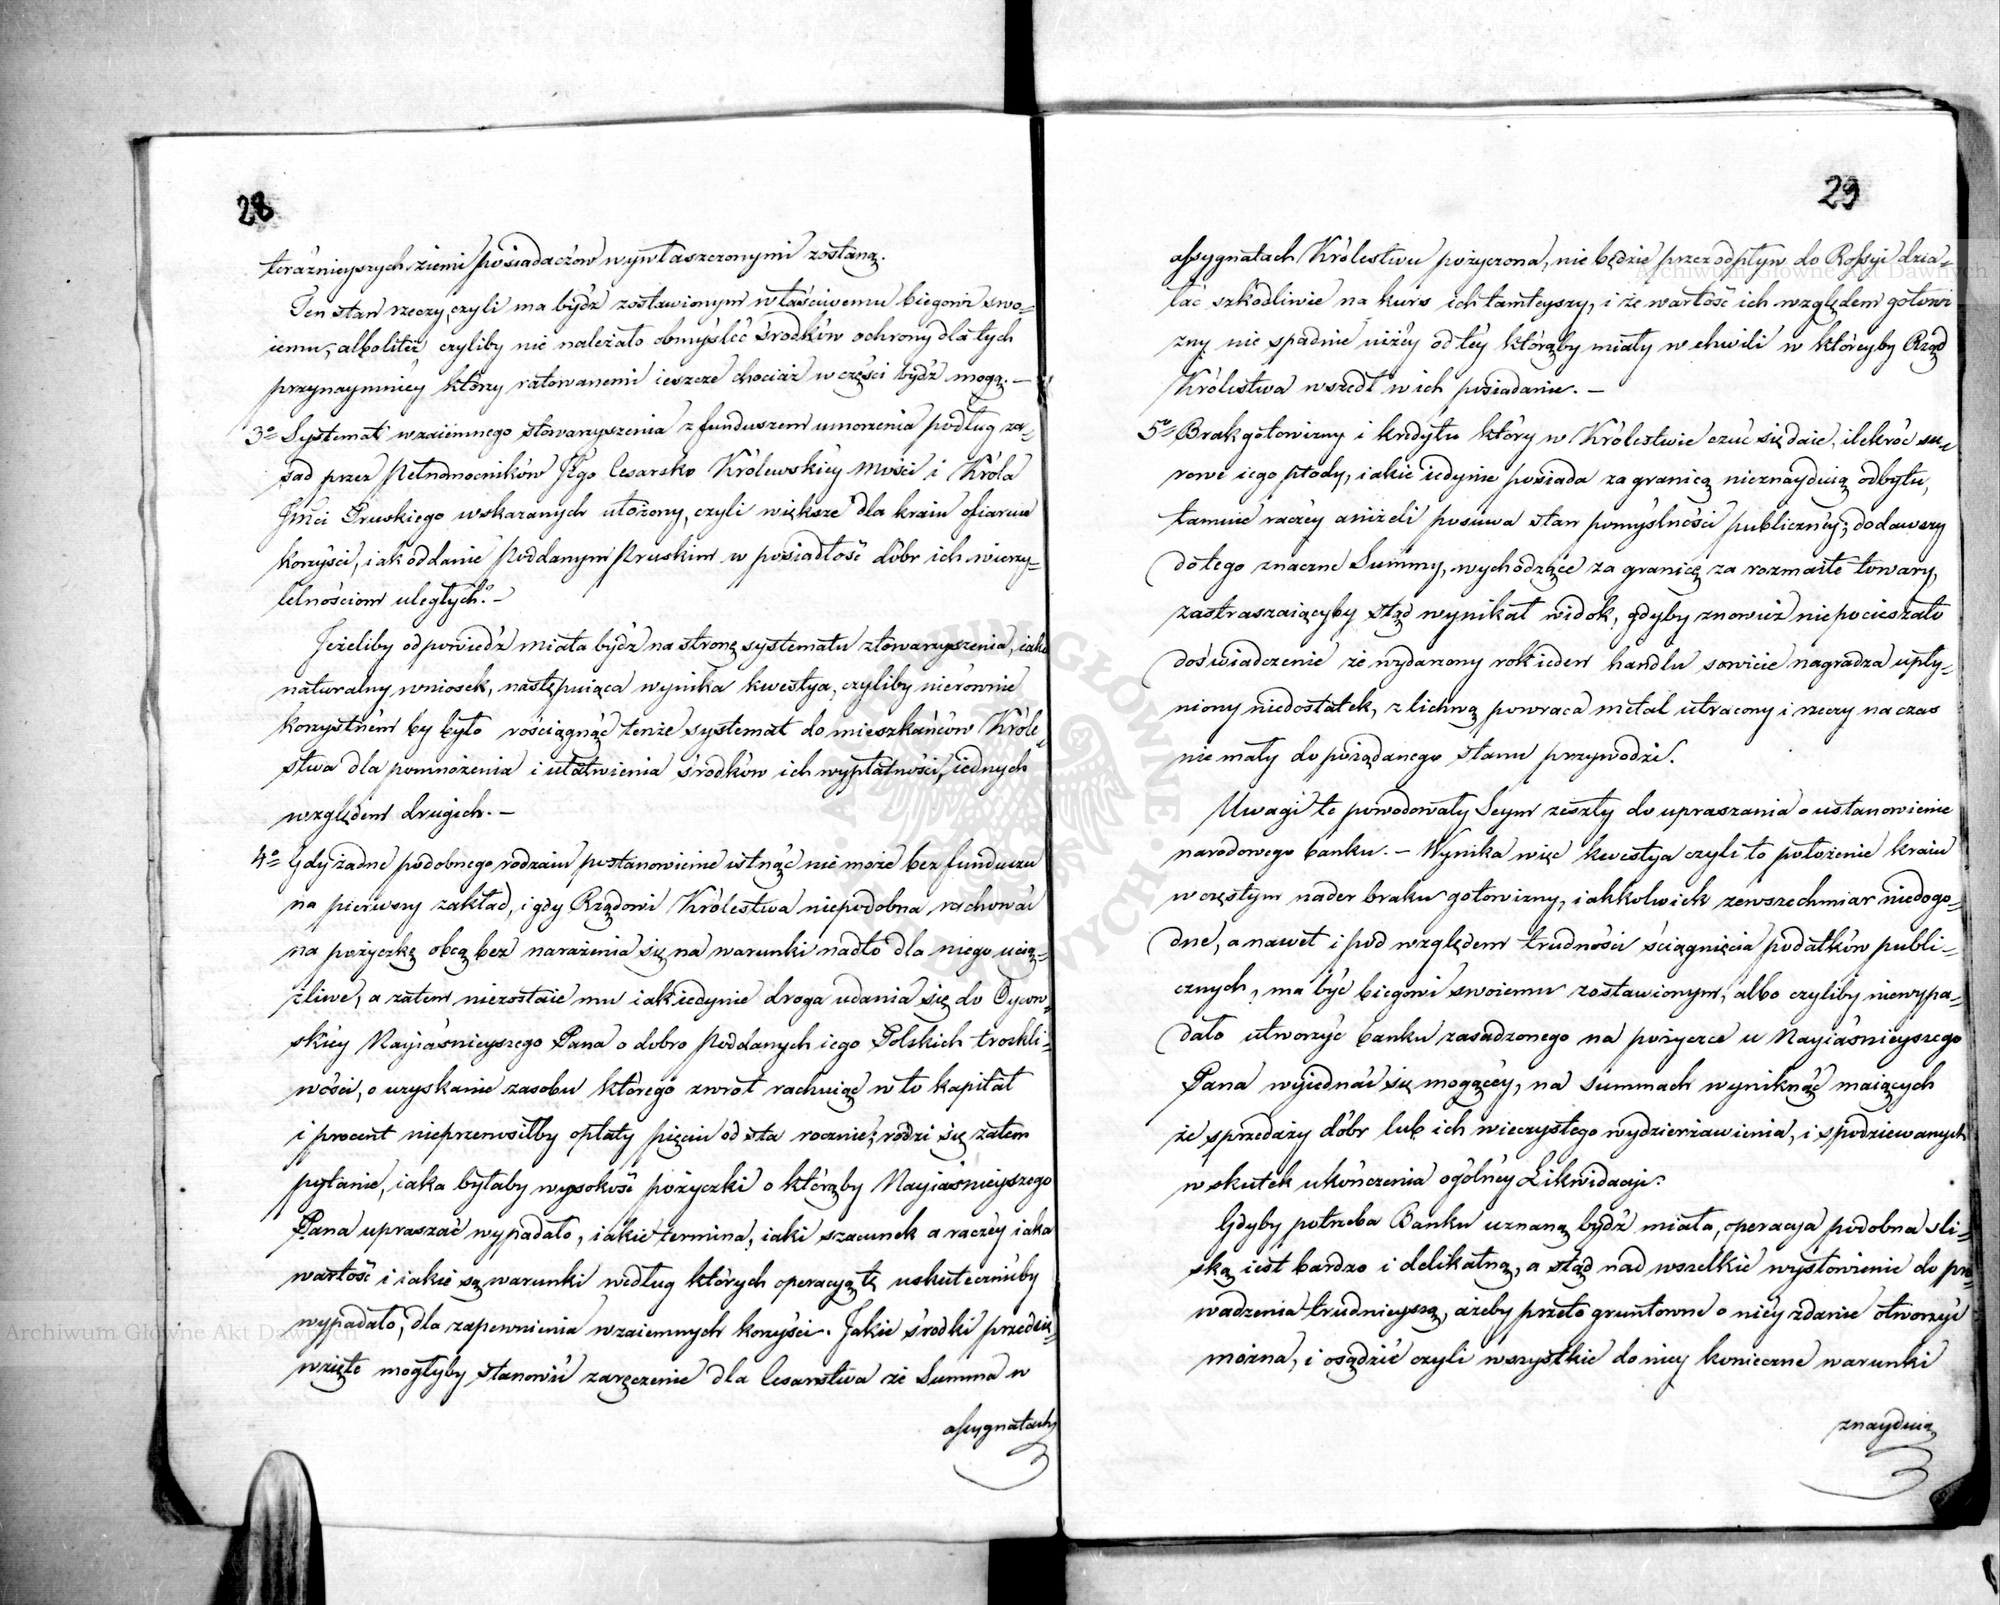 28
teraznieyszych ziemi posiadaczów wywłaszczonymi zostaną.
Ten stan rzeczy, czyli ma bydź zostawionym właściwemu biegowi swo-
iemu, alboliteż czyliby nie należało obmyśleć środków ochrony dla tych
przynaymniey którzy ratowanemi ieszcze chociaż w części bydź mogą. —
3o Systemat wzaiemnego stowarzyszenia z funduszem umorzenia podług za-
sad przez Pełnomocników Jego Cesarsko Królewskiey Mości i Króla
Jmci Pruskiego wskazanych ułożony, czyli większe dla kraiu ofiaruie
korzyści, iak oddanie Poddanym Pruskim w posiadłość dóbr ich wierzy-
telnościom uległych? —
Jeżeliby odpowiedź miała bydź na stronę systematu stowarzyszenia, iako
naturalny wniosek, następuiąca wynika kwestya, czyliby nierównie
korzystném by było rościągnąć tenże systemat do mieszkańców Króle-
stwa dla pomnożenia i ułatwienia środków ich wypłatności, iednych
względem drugich. —
4o Gdy żadne podobnego rodzaiu postanowienie istnąć nie może bez funduszu
na pierwszy zakład, i gdy Rządowi Królestwa niepodobna rachować
na pożyczkę obcą bez narażenia się na warunki nadto dla niego ucią-
żliwe, a zatem niezostaie mu iak iedynie droga udania się do Oycow-
skiey Nayiaśnieyszego Pana o dobro Poddanych iego Polskich troskli-
wości, o uzyskanie zasobu którego zwrot rachuiąc w to kapitał
i procent nieprzenosiłby opłaty pięciu od sta rocznie; rodzi się zatem
pytanie, iaka byłaby wysokość pożyczki o którąby Nayiaśnieyszego
Pana upraszać wypadało, iakie termina, iaki szacunek a raczéy iaka
wartość i iakie są warunki według których operacyą tę uskutecznićby
wypadało, dla zapewnienia wzaiemnych korzyści. Jakie środki przedsię-
wzięte mogłyby stanowić zaręczenie dla Cesarstwa że Summa w
assygnatach
29
assygnatach Królestwu pożyczona, nie będzie przez odpływ do Rossyi dzia-
łać szkodliwie na kurs ich tamteyszy, i że wartość ich względem gotowi
zny nie spadnie niżéy od téy którąby miały w chwili w któreyby Rząd
Królestwa wszedł w ich posiadanie. —
5o Brak gotowizny i kredytu który w Królestwie czuć się daie, ilekroć su-
rowe iego płody, iakie iedynie posiada za granicą nieznayduią odbytu,
tamuie raczey aniżeli posuwa stan pomyślności publicznéy; dodawszy
do tego znaczne Summy, wychodzące za granicę za rozmaite towary,
zastraszaiącyby stąd wynikał widok, gdyby znowuż niepocieszało
doświadczenie że wydarzony rok ieden handlu sowicie nagradza upły-
niony niedostatek, z lichwą powraca metal utracony i rzeczy na czas
nie mały do pożądanego stanu przywodzi.
Uwagi te powodowały Seym zeszły do upraszania o ustanowienie
narodowego banku. — Wynika więc kwestya czyli to położenie kraiu
w częstym nader braku gotowizny, iakkolwiek zewszechmiar niedogo-
dne, a nawet i pod względem trudności ściągnięcia podatków publi-
cznych, ma być biegowi swoiemu zostawionym, albo czyliby niewypa-
dało utworzyć banku zasadzonego na pożyczce u Nayiaśnieyszego
Pana wyiednać się mogącéy, na summach wyniknąć maiących
ze sprzedaży dóbr lub ich wieczystego wydzierżawienia, i spodziewanych
w skutek ukończenia ogólnéy Likwidacji.
Gdyby potrzeba Banku uznaną bydź miała, operacja podobna śli-
ską iest bardzo i delikatną, a stąd nad wszelkie wysłowienie do pro-
wadzenia trudnieyszą, ażeby przeto gruntowne o niéy zdanie otworzyć
można, i osądzić czyli wszystkie do niey konieczne warunki
znayduią
Archiwum Główne Akt Dawnych
Archiwum Główne Akt Dawnych